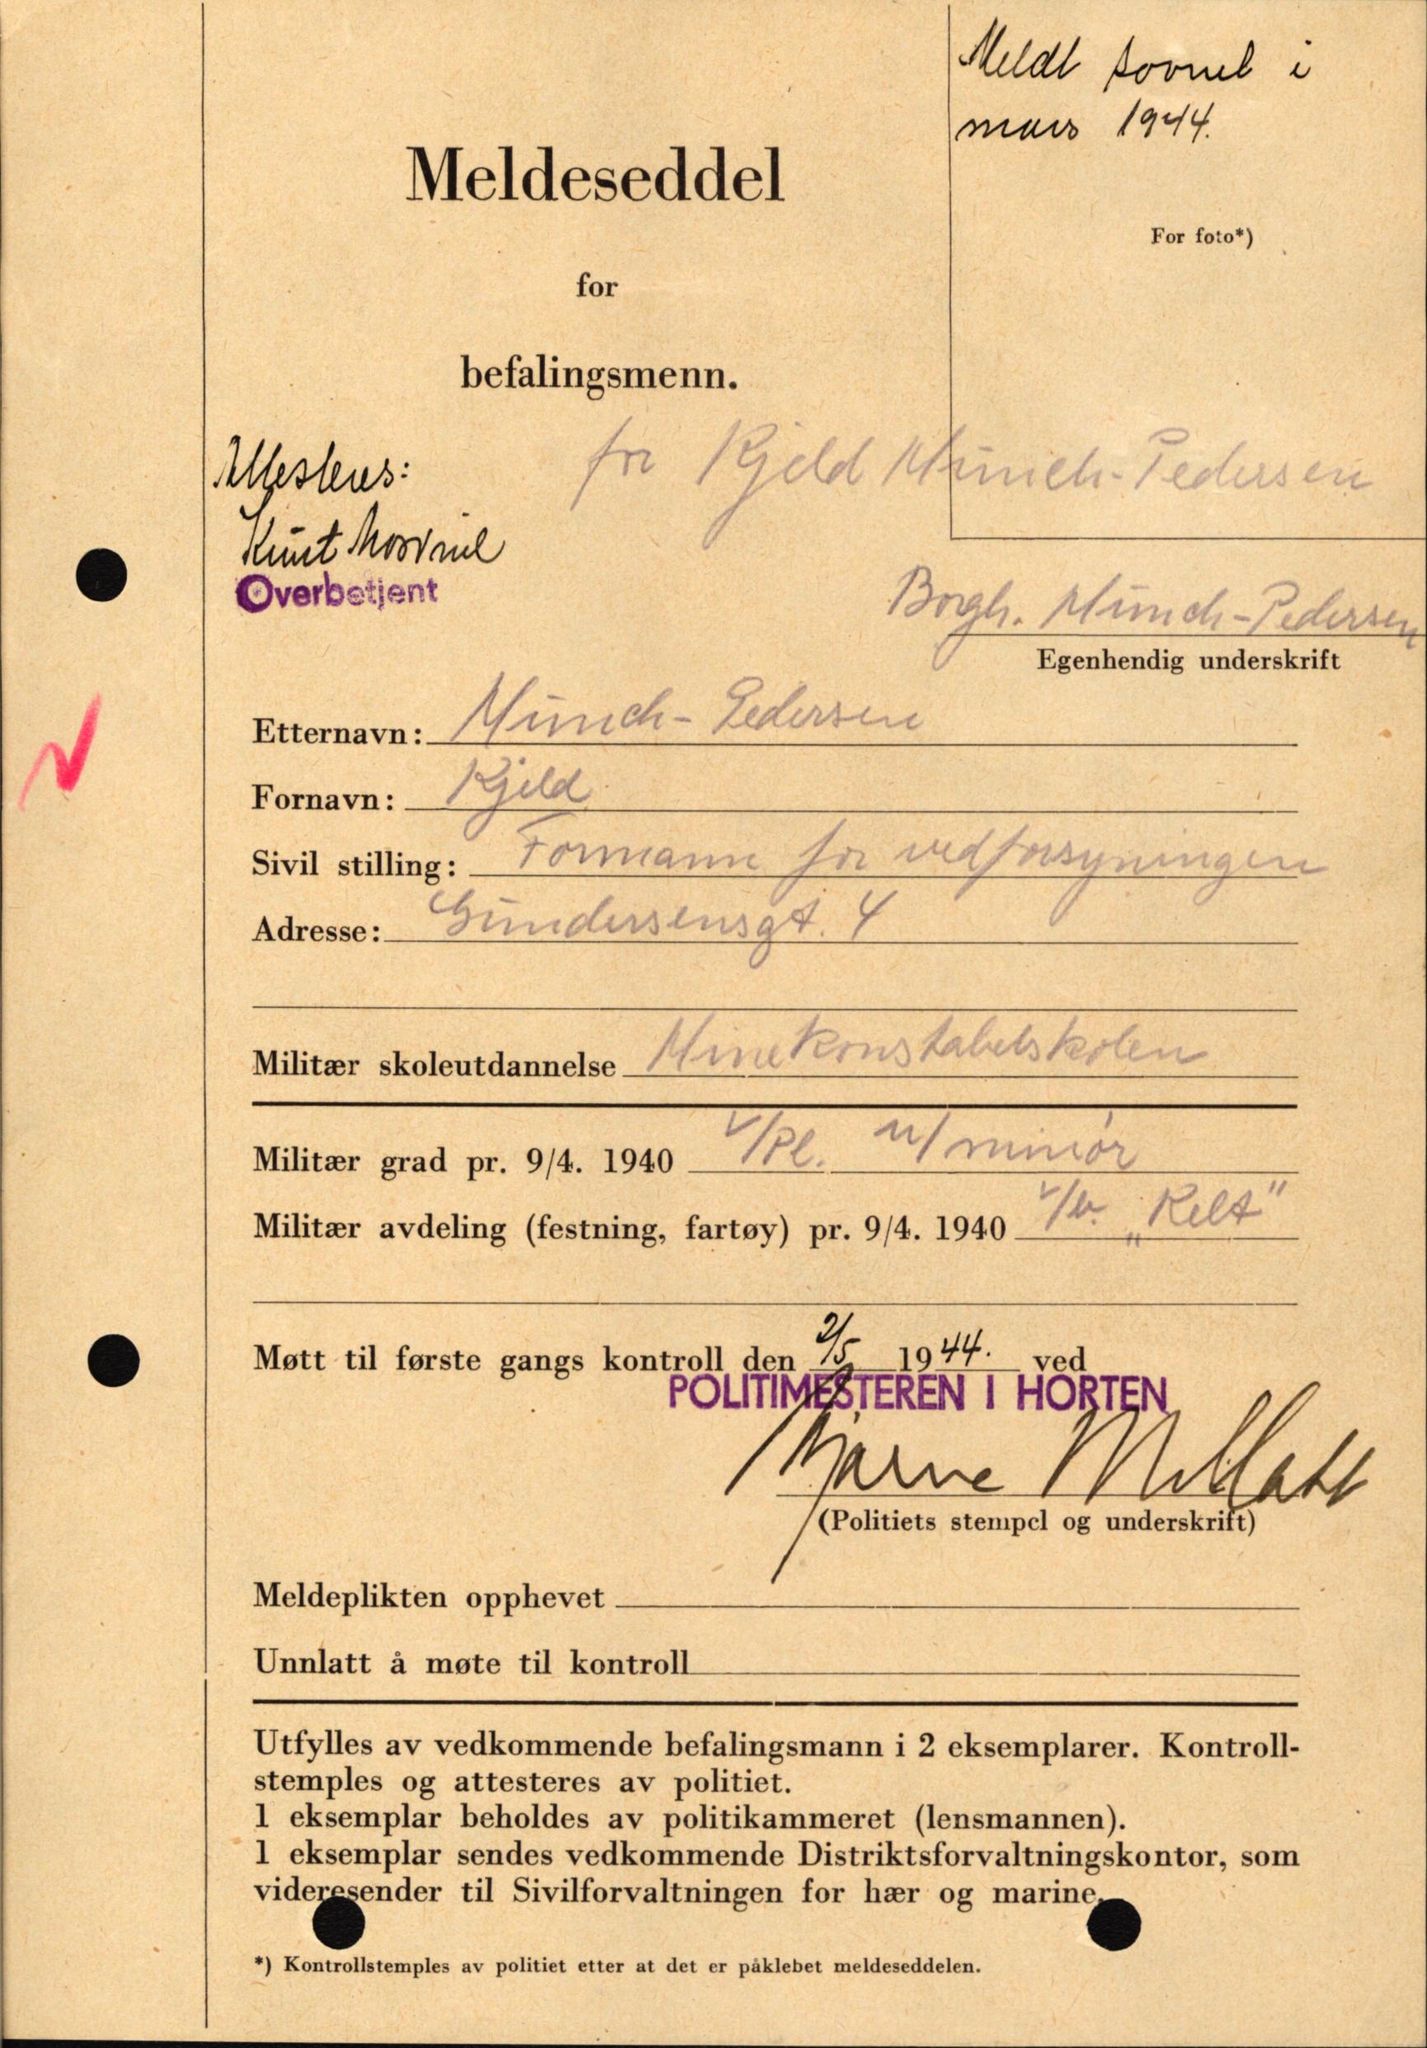 Meldt savnet i
mars 1944.
Meldeseddel
For foto*)
for
befalingsmenn.
for Kjeld Münch-Pedersen
Attesteres:
Overbetjent
Borgh. Münch-Pedersen
Egenhendig underskrift
Etternavn: Münch-Pedersen
Fornavn: Kjeld
Sivil stilling: Formann for vedforsyningen
Adresse: Gundersensgt. 4
Militær skoleutdannelse Minekonstabelskolen
Militær grad pr. 9/4. 1940 v/pl. u/minør
Militær avdeling (festning, fartøy) pr. 9/4. 1940 v/b. „Kelt"
Møtt til første gangs kontroll den 2/5 1944. ved
POLITIMESTEREN I HORTEN
Bjarne
(Politiets stempel og underskrift)
Meldeplikten opphevet
Unnlatt å møte til kontroll
Utfylles av vedkommende befalingsmann i 2 eksemplarer. Kontroll-
stemples og attesteres av politiet.
1 eksemplar beholdes av politikammeret (lensmannen).
1 eksemplar sendes vedkommende Distriktsforvaltningskontor, som
videresender til Sivilforvaltningen for hær og marine.
*) Kontrollstemples av politiet etter at det er påklebet meldeseddelen.